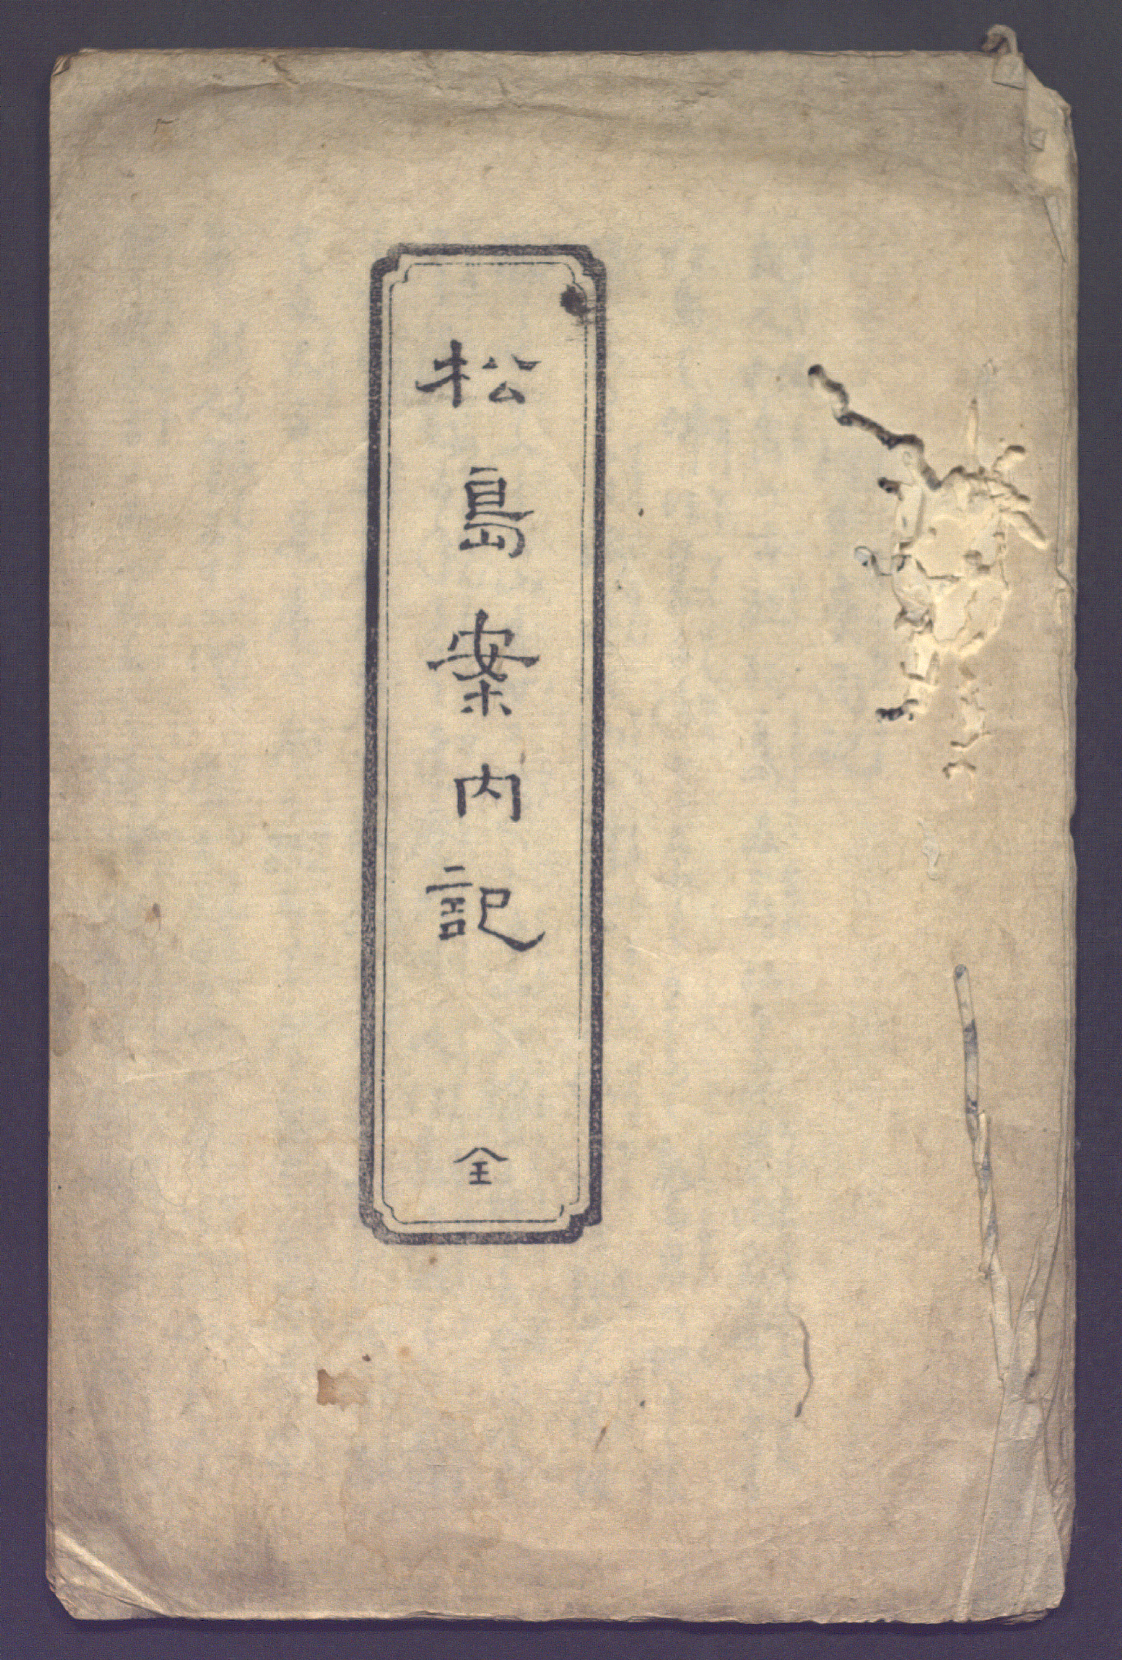 松島案内記
全